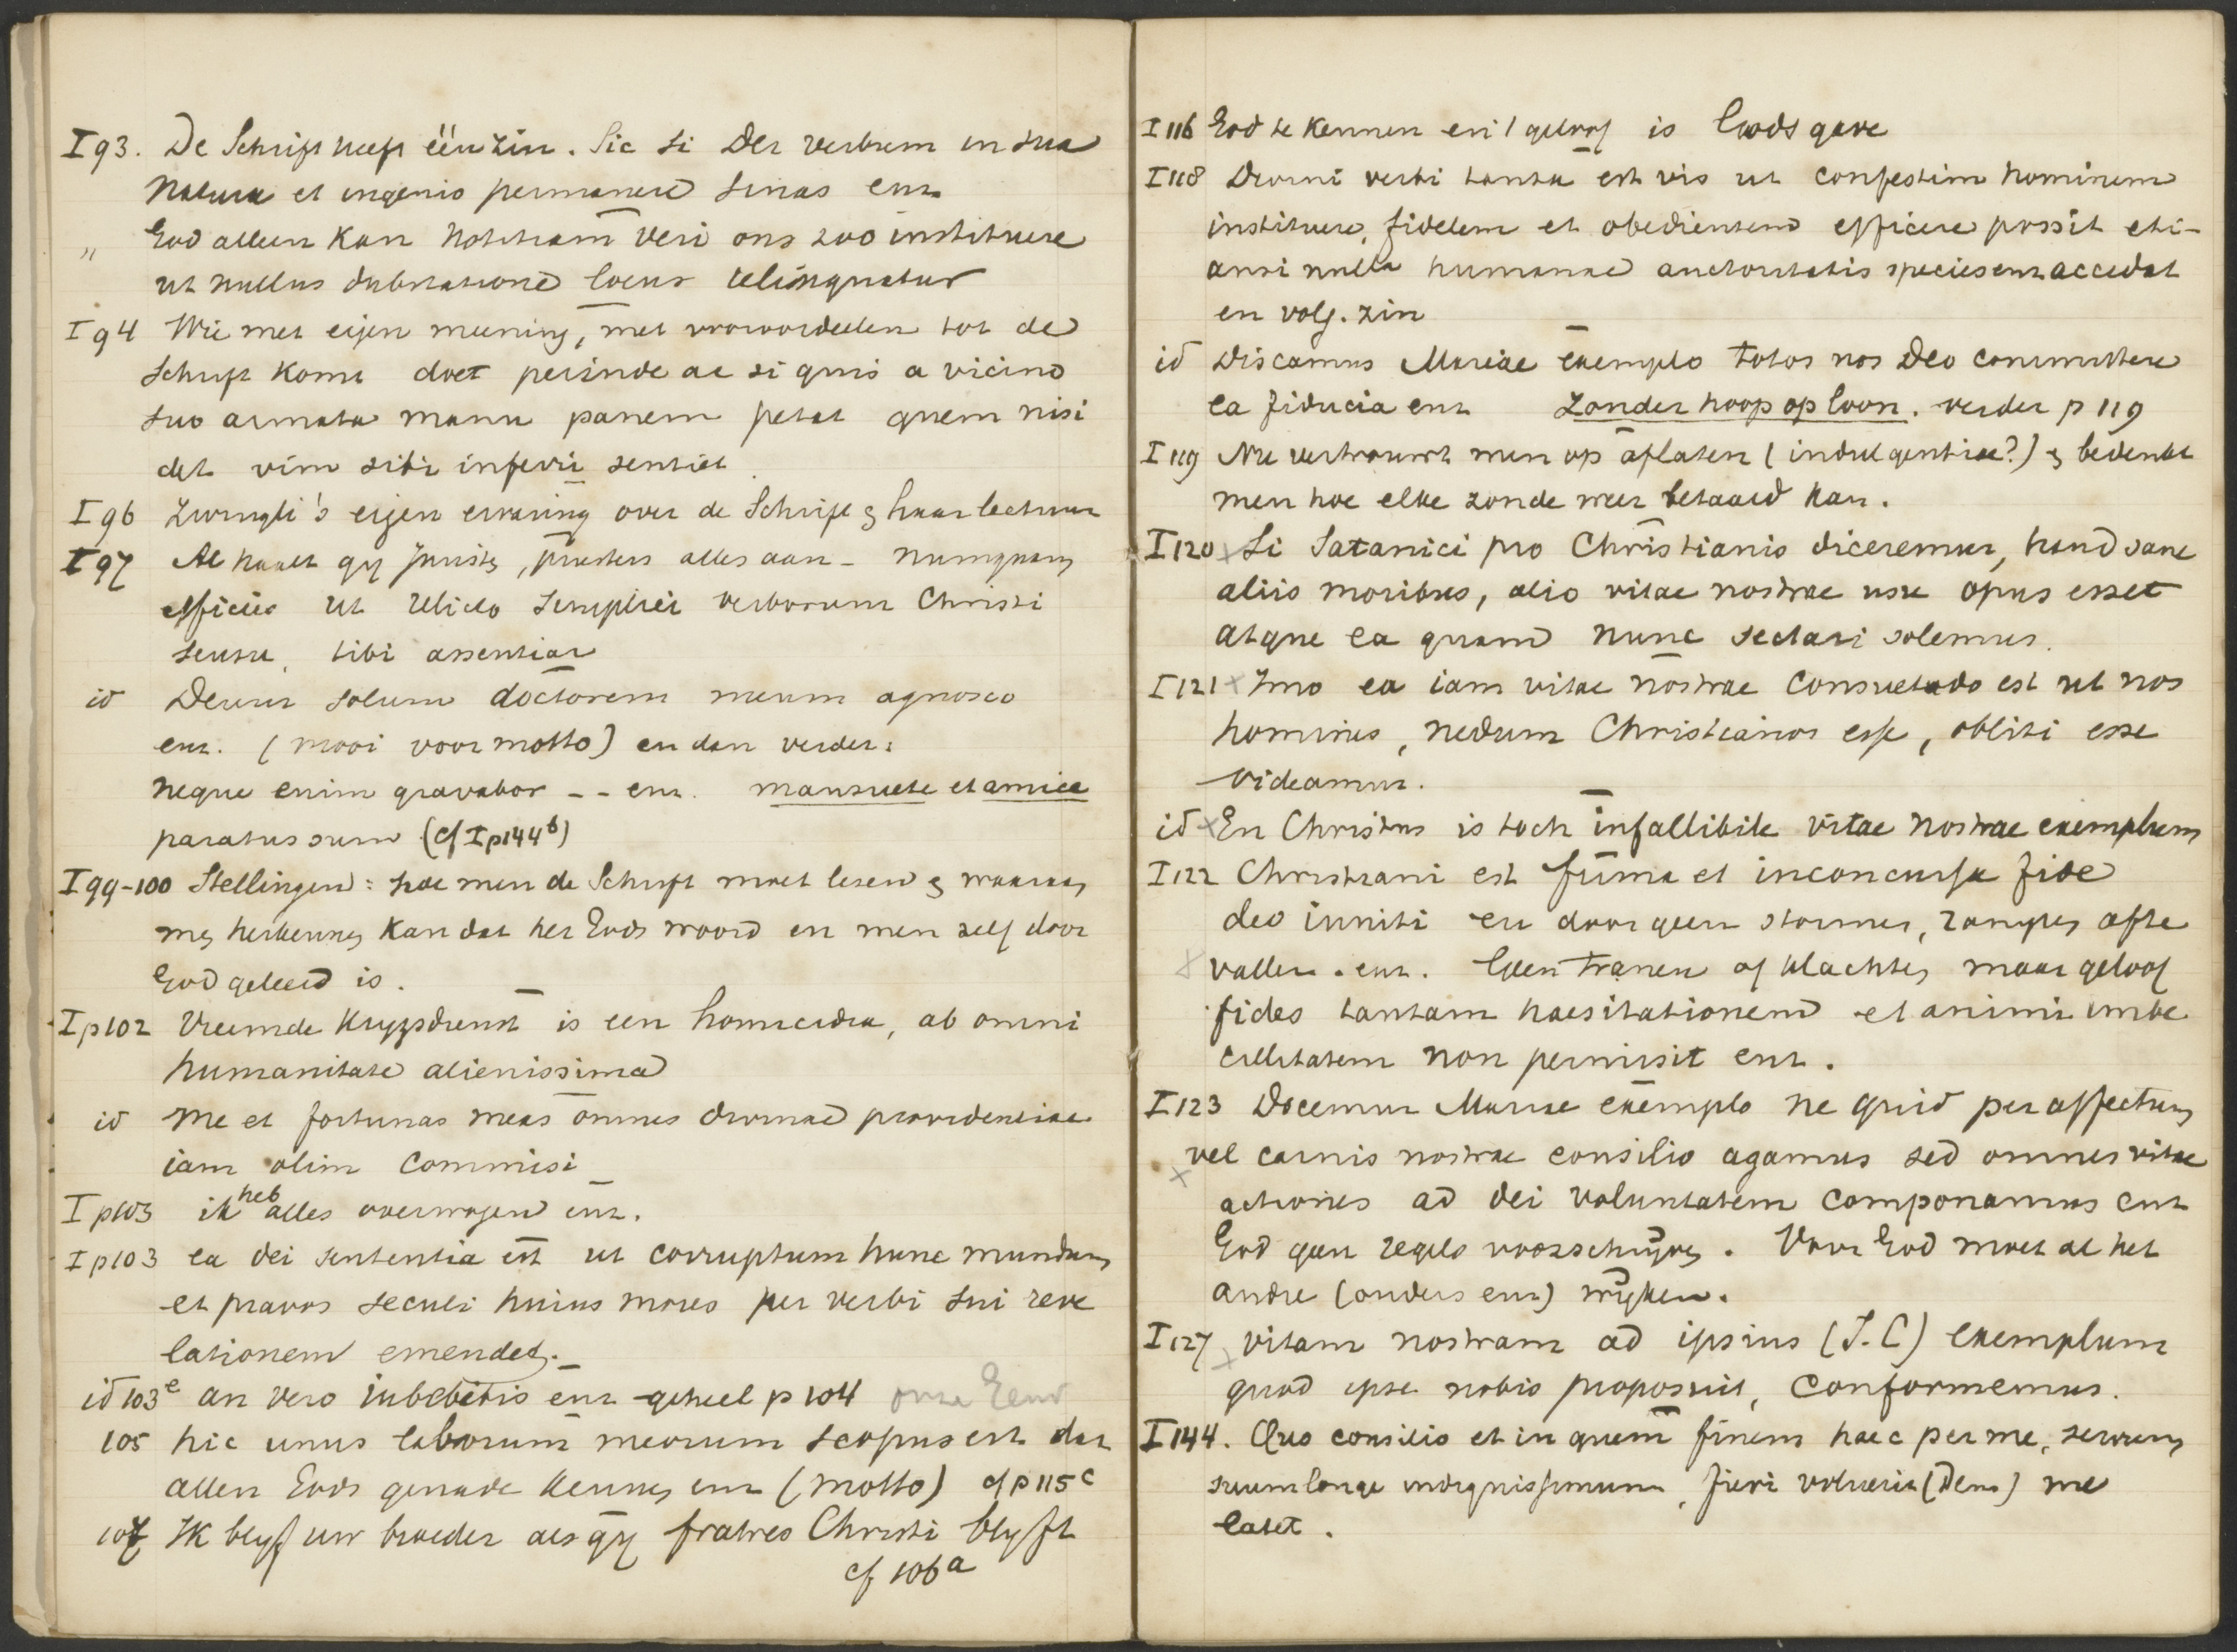 I 93. De Schrift heeft één zin. Sic si Dei verbum in sua
natura et ingenio permanere sinas enz
" God alleen kan notitiam veri ons zoo instituere
ut nullus dubitatione locus relinquatur
I 94 Wie met eigen meening, met vooroordeelen tot de
Schrift komt doet perinde ac si quis a vicino
suo armata manu panem petat quem nisi
det vim sibi inferri sentiet
I 96 Zwingli's eigen ervaring over de Schrift & haar lectuur
I 97 Al haalt gy Juristen, priesters alles aan - numquam
efficies ut relicto simplici verborum Christi
sensu, tibi assentiar
id Deum solum doctorem meum agnosco
enz. (mooi voor motto) en dan verder:
neque enim gravabor -- enz. mansuete et amice
paratus sum (cf I p 144 b)
I 99-100 Stellingen: hoe men de Schrift moet lezen & waaraan
men herkennen kan dat het Gods woord en men zelf door
God geleerd is.
I p 102 Vreemde Krygsdienst is een homicidia, ab omni
humanitate alienissima
id me et fortunas meas omnes divinae providentiae
iam olim commisi
I p 103 ik heb alles overwogen enz.
I p 103 ea dei sententia est ut corruptum hunc mundum
et pravos seculi huius mores per verbi sui reve
lationem emendet.
id 103 e an vero iubebitis enz geheel p 104 onze
105 hic unus laborum meorum scopus est dat
allen Gods genade kennen enz (motto) cf p 115 c
107 Ik blyf uw broeder als gy fratres Christi blyft
cf 106 a
I 116 God te kennen en 't geloof is Gods gave
I 118 Divini verbi tanta est vis ut confestim hominem
instituere, fidelem et obedientem efficere possit eti-
amsi nulla humanae auctoritatis species enz accedat
en volg. zin
id Discamus Mariae exemplo totos nos Deo committere
ea fiducia enz zonder hoop op loon. verder p 119
I 119 Nu vertrouwt men op aflaten (indulgentiae?) & bedenkt
men hoe elke zonde weer betaald kan.
I 120 Si Satanici pro Christianis diceremur, haud sane
aliis moribus, alio vitae nostrae usu opus esset
atque ea quam nunc sectari solemus.
I 121 Imo ea iam vitae nostrae consuetudo est ut nos
homines, nedum Christianos esse, obliti esse
videamur.
id En Christus is toch infallibile vitae nostrae exemplum
I 122 Christiani est firma et inconcussa fide
deo inniti en door geen stormen, rampen af te
vallen. enz. Geen tranen of klachten maar geloof
fides tantam haesitationem et animi imbe
cillitatem non permisit enz.
I 123 Docemur Mariae exemplo ne quid per affectum
vel carnis nostrae consilio agamus sed omnes vitae
actiones ad dei voluntatem componamus enz
God geen regels voorschryven. Voor God moet al het
andre (ouders enz) wyken.
I 127 vitam nostram ad ipsius (J.C) exemplum
quod ipse nobis proposuit, conformemus.
I 144. Quo consilio et in quem finem haec per me, servum
suum longe indignissimum, fieri voluerit (Deus) me
latet.